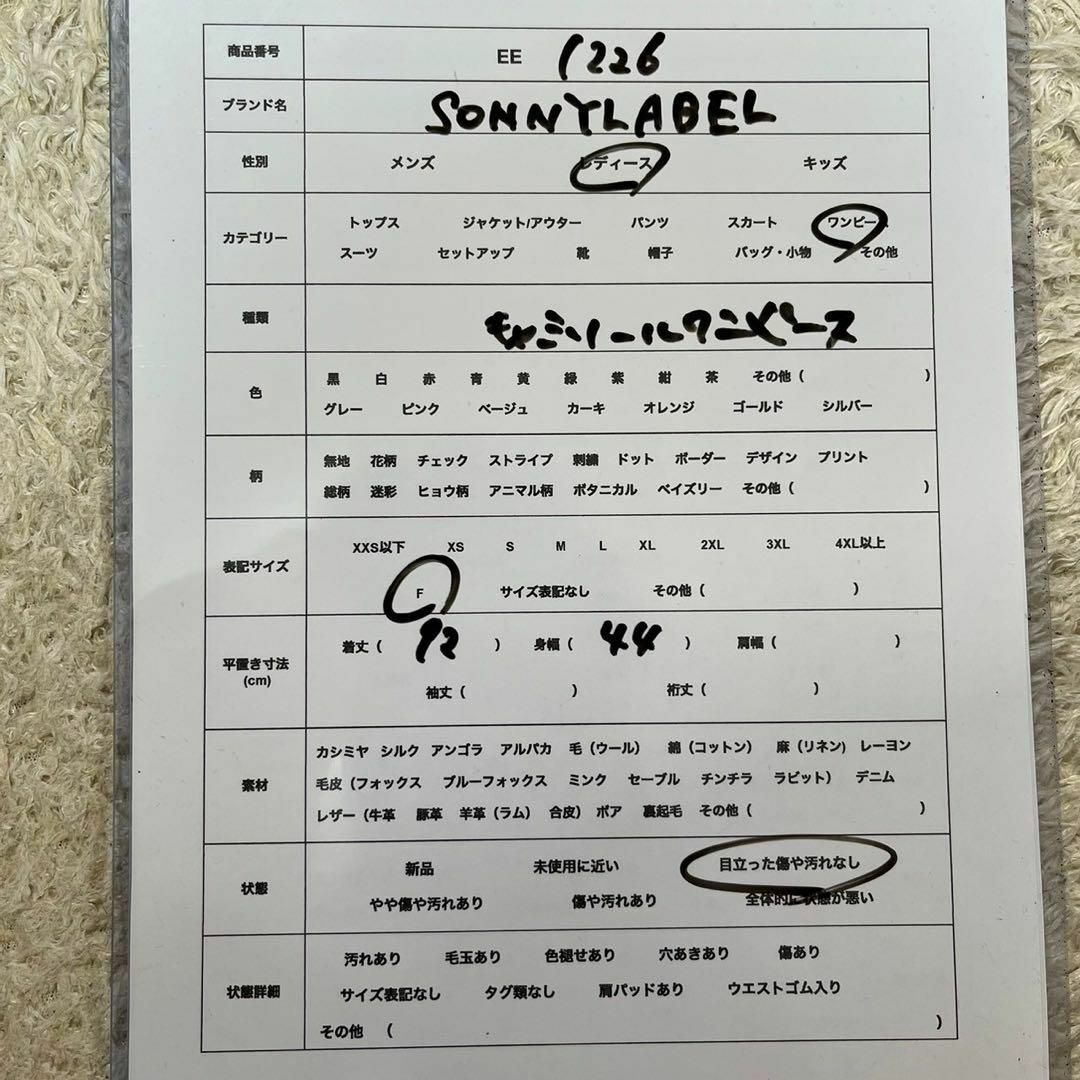 商品番号 EE 1226
ブランド名 SONNYLABEL
性別 メンズ レディース キッズ
カテゴリー
トップス ジャケット/アウター パンツ スカート ワンピース
スーツ セットアップ 靴 帽子 バッグ・小物 その他
種類 キャミソールワンピース
色
黒 白 赤 青 黄 緑 紫 紺 茶 その他 ( )
グレー ピンク ベージュ カーキ オレンジ ゴールド シルバー
柄
無地 花柄 チェック ストライプ 刺繍 ドット ボーダー デザイン プリント
総柄 迷彩 ヒョウ柄 アニマル柄 ボタニカル ペイズリー その他 ( )
表記サイズ
XXS以下 XS S M L XL 2XL 3XL 4XL以上
F サイズ表記なし その他 ( )
平置き寸法
(cm)
着丈 ( 92 ) 身幅 ( 44 ) 肩幅 ( )
袖丈 ( ) 裄丈 ( )
素材
カシミヤ シルク アンゴラ アルパカ 毛 (ウール) 綿 (コットン) 麻 (リネン) レーヨン
毛皮 (フォックス ブルーフォックス ミンク セーブル チンチラ ラビット) デニム
レザー (牛革 豚革 羊革 (ラム) 合皮) ボア 裏起毛 その他 ( )
状態
新品 未使用に近い 目立った傷や汚れなし
やや傷や汚れあり 傷や汚れあり 全体的に状態が悪い
状態詳細
汚れあり 毛玉あり 色褪せあり 穴あきあり 傷あり
サイズ表記なし タグ類なし 肩パッドあり ウエストゴム入り
その他 ( )